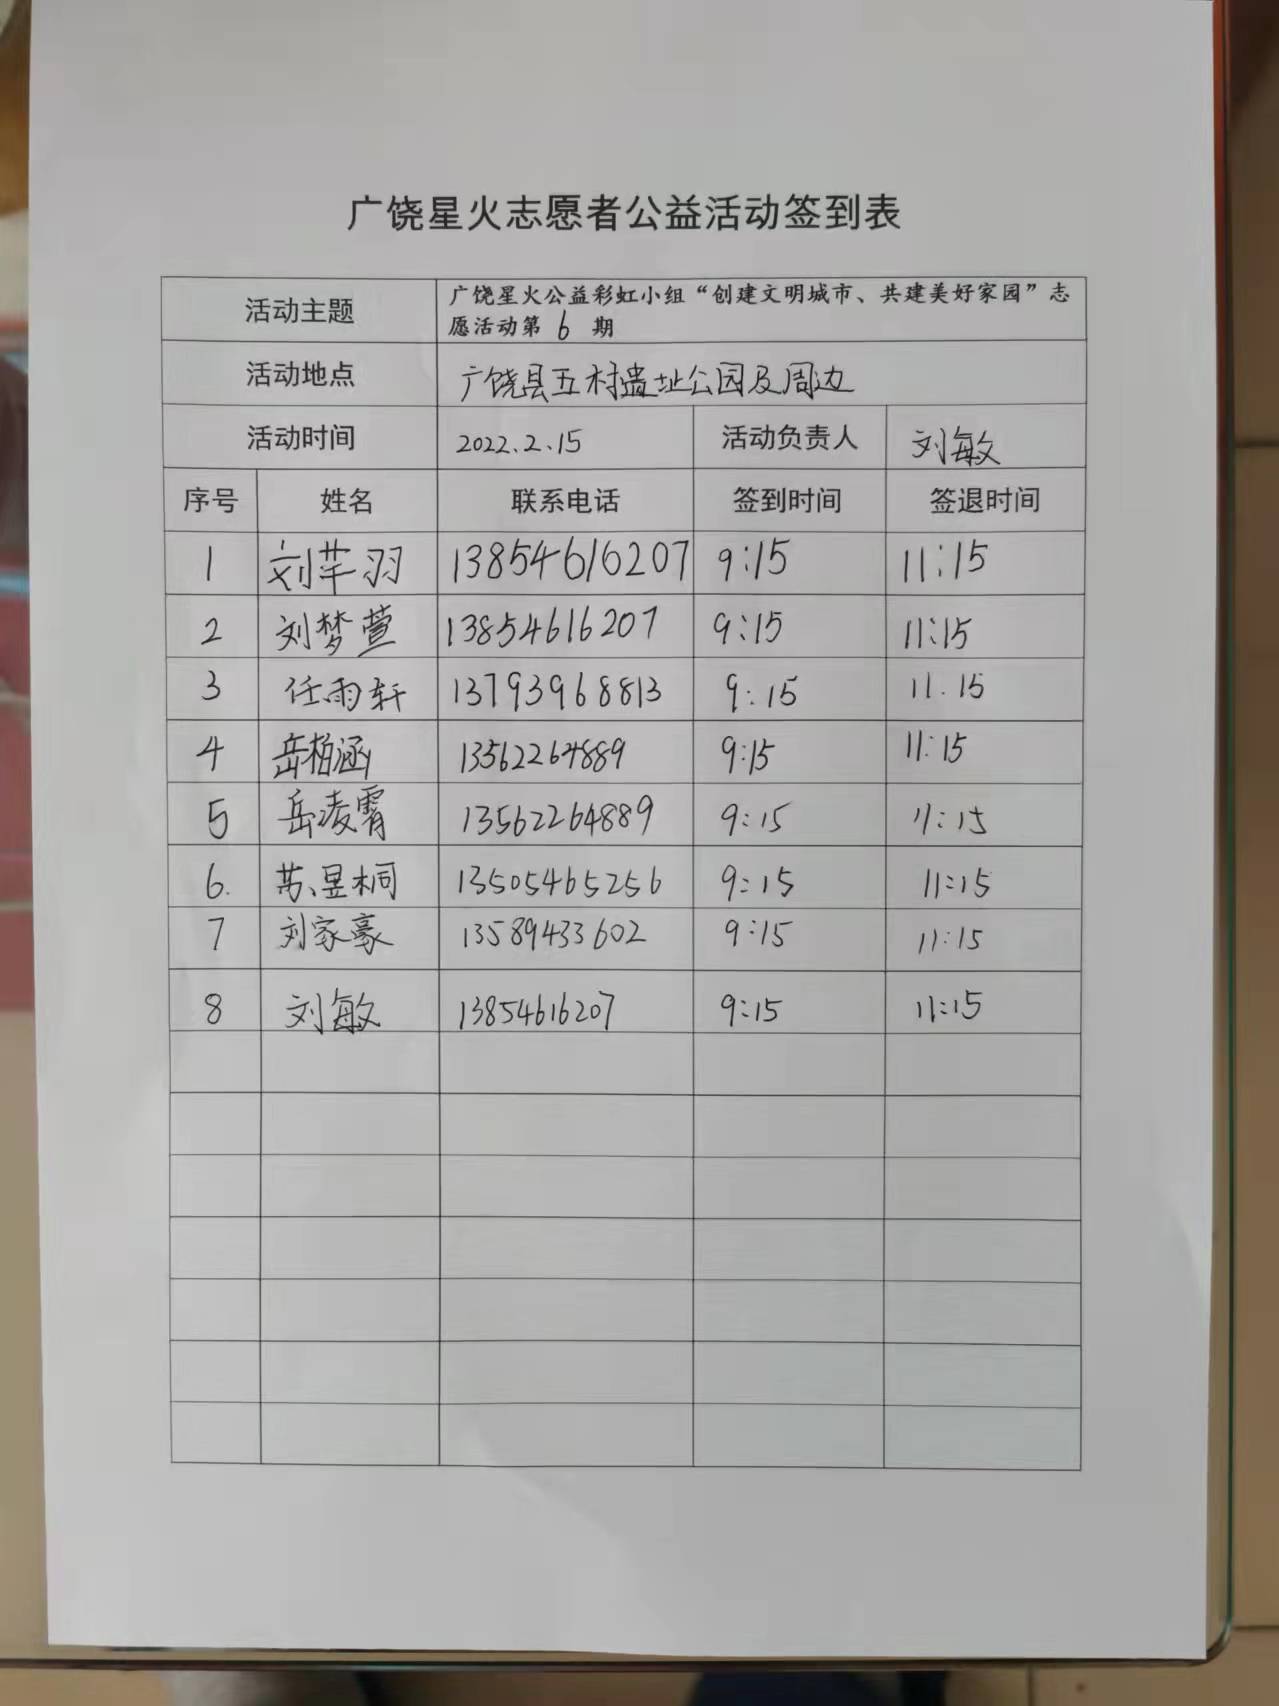 广饶星火志愿者公益活动签到表
活动主题 广饶星火公益彩虹小组“创建文明城市、共建美好家园”志
愿活动第 6 期
活动地点 广饶县五村遗址公园及周边
活动时间 2022.2.15 活动负责人 刘敏
序号 姓名 联系电话 签到时间 签退时间
1 刘芊羽 13854616207 9:15 11:15
2 刘梦萱 13854616207 9:15 11:15
3 任雨轩 13793968813 9:15 11.15
4 岳柏涵 13562264889 9:15 11:15
5 岳凌霄 13562264889 9:15 11:15
6. 苏昱桐 13505465256 9:15 11:15
7 刘家豪 13589433602 9:15 11:15
8 刘敏 13854616207 9:15 11:15